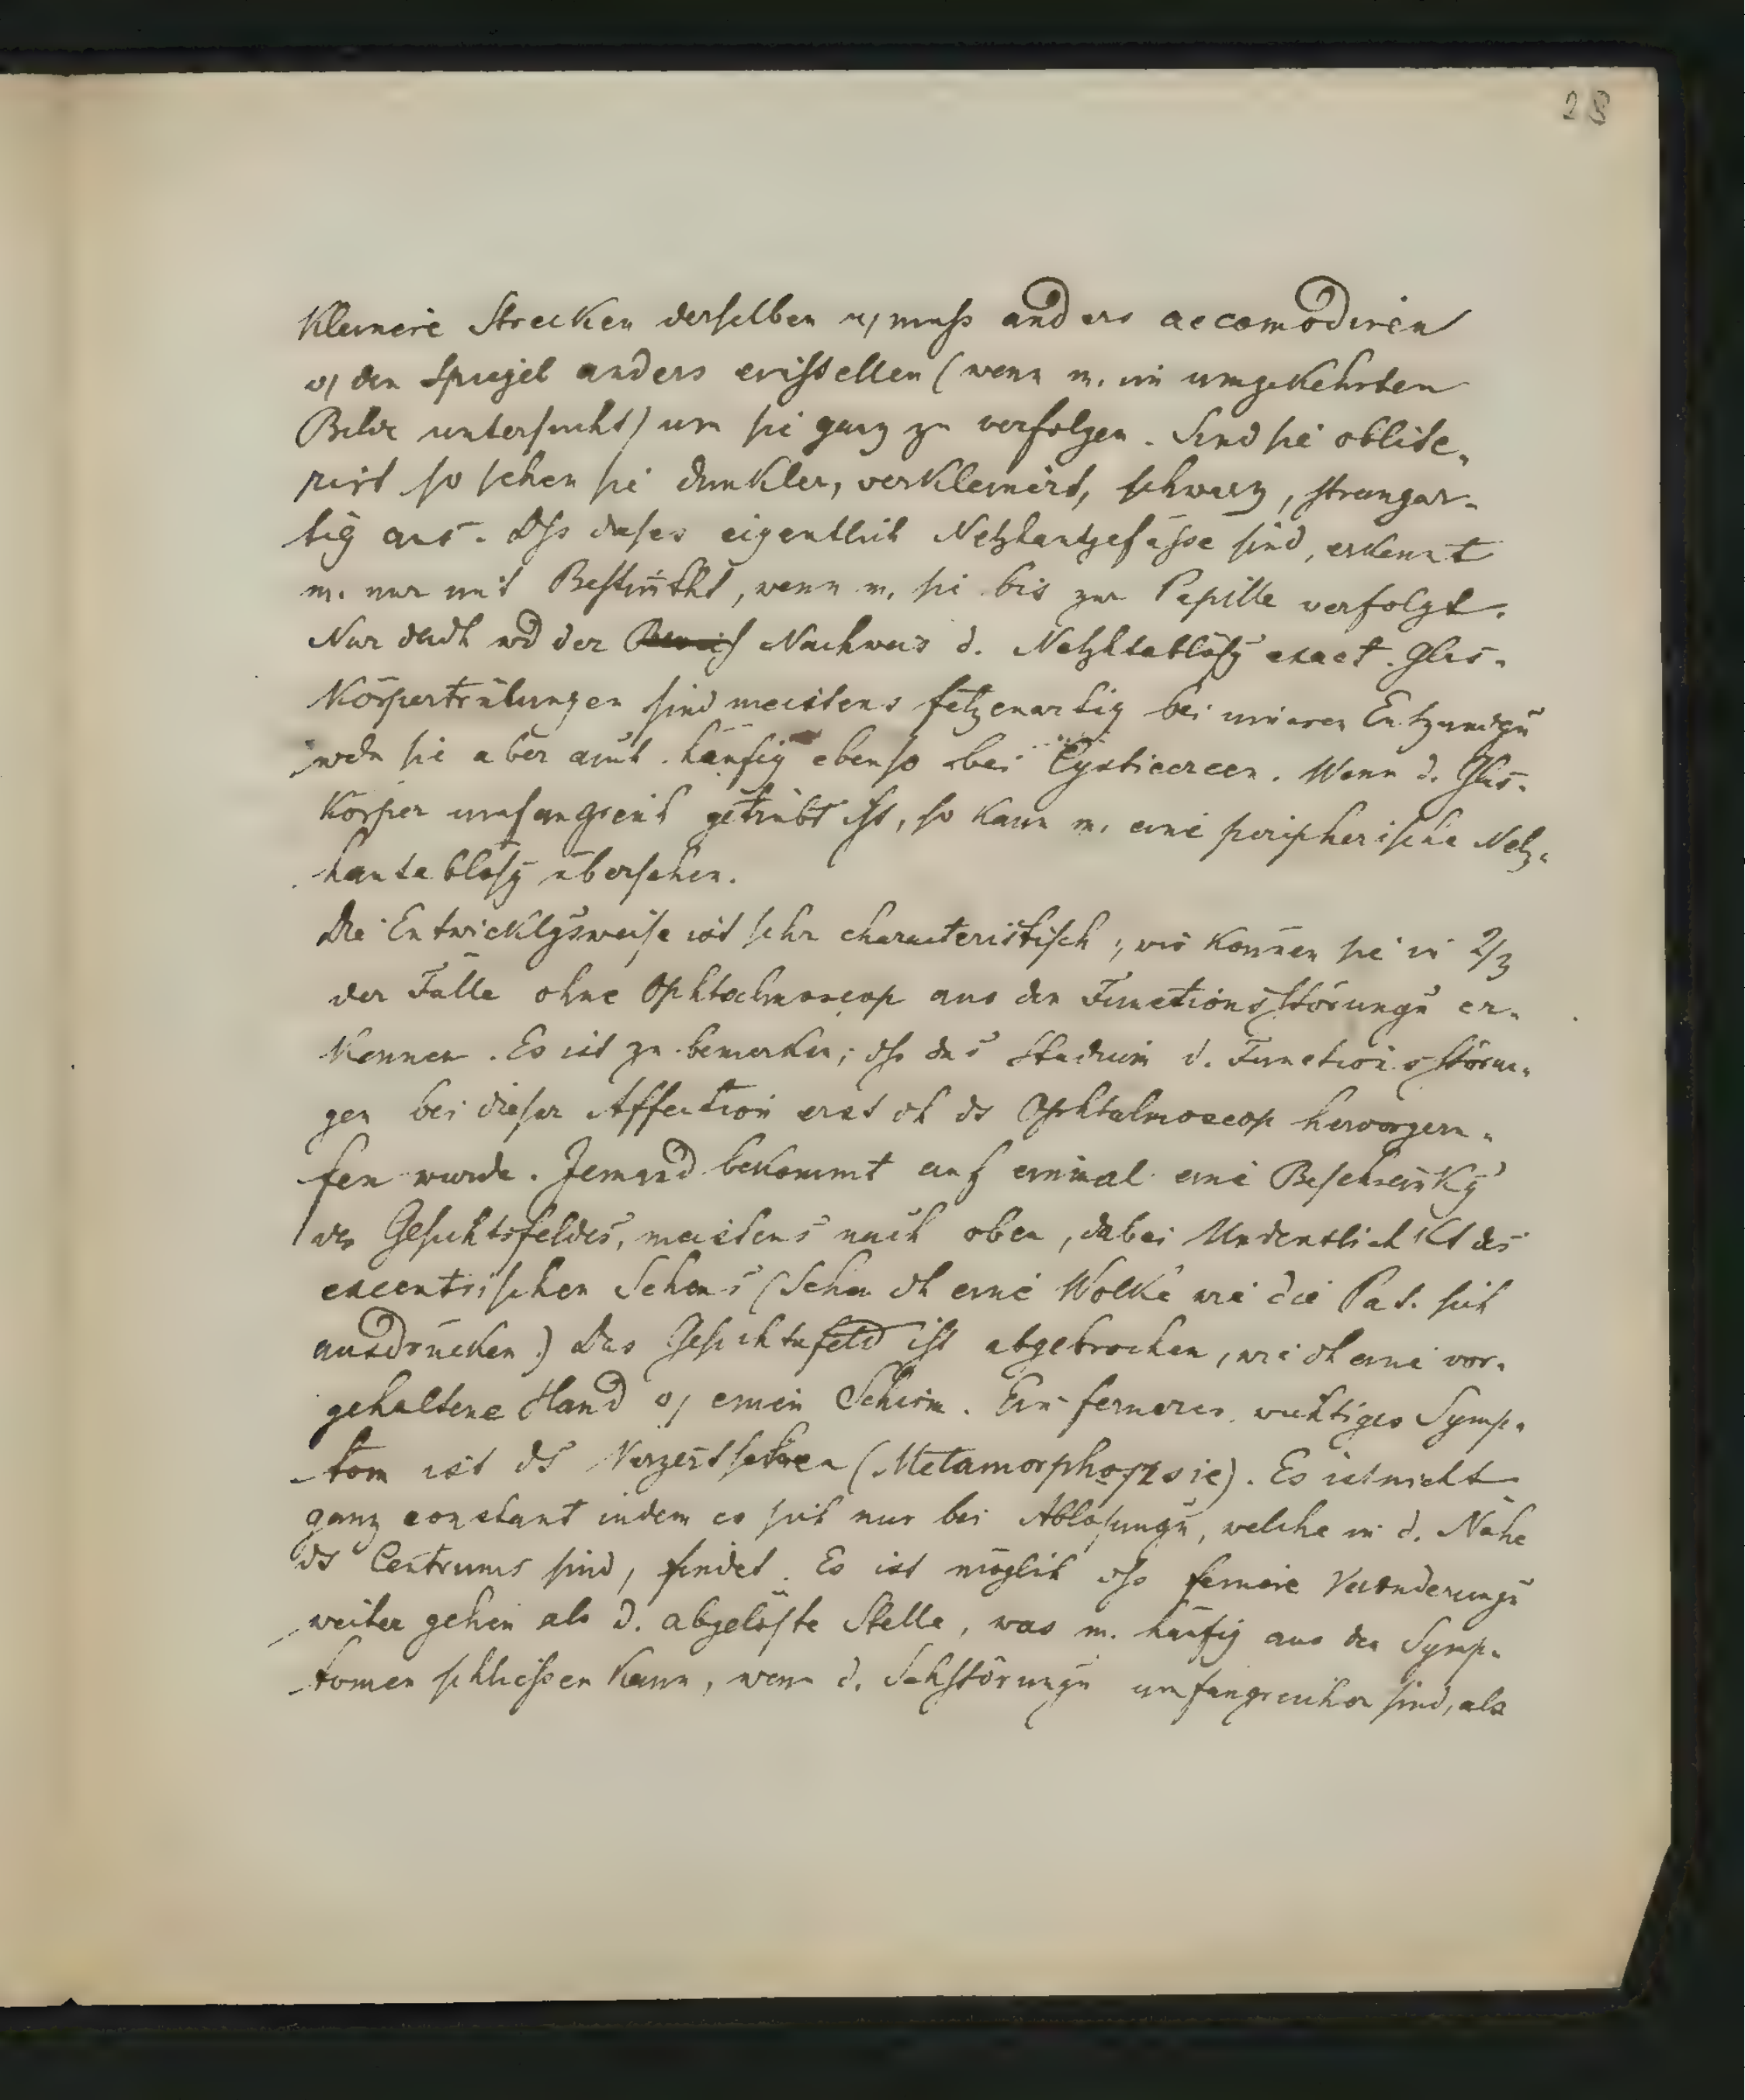 28
Kleinere Strecken derselben u. muss anders accomodiren
od den Spiegel anders einstellen (wenn m. im umgekehrten
Bilde untersucht) um sie ganz zu verfolgen. Sind sie oblite-
rirt so sehen sie dunkler, verkleinert, schwarz, strangar-
tig aus. Dss dieses eigentlich Netzhautgefässe sind, erkennt
m. nur mit Bestimtht, wenn m. sie bis zur Papille verfolgt.
Nur dadh wd der Nachweis d. Netzhtablösg exact. Glas-
körpertrübungen sind meistens fetzenartig bei inneren Entzündgn
wdn sie aber auch häufig ebenso bei Cysticercen. Wenn d. Glas-
körper umfangreich getrübt ist, so kann m. eine peripherische Netz-
hautablösg übersehen.
Die Entwicklgsweise ist sehr characteristisch; wir können sie in 2/3
der Fälle ohne Ophtalmoscop aus den Functionsstörungn er-
kennen. Es ist zu bemerken; dss das Studium d. Functionsstörun-
gen bei dieser Affection erst dh ds Ophtalmoscop hervorgeru-
fen wurde. Jemand bekommt auf einmal eine Beschränkg
des Gesichtsfeldes, meistens nach oben, dabei Undeutlichkt des
excentrischen Sehens (Sehen dh eine Wolke wie die Pat. sich
ausdrücken.) Das Gesichtsfeld ist abgebrochen, wie dh eine vor-
gehaltene Hand od einen Schirm. Ein ferneres wichtiges Symp-
tom ist ds Verzerrtsehen (Metamorphopsie). Es ist nicht
ganz constant indem es sich nur bei Ablösungn, welche in d. Nähe
ds Centrums sind, findet. Es ist möglich dss feinere Veränderungn
weiter gehen als d. abgelöste Stelle, was m. häufig aus den Symp-
tomen schliessen kann, wenn d. Sehstörungn umfangreicher sind, als